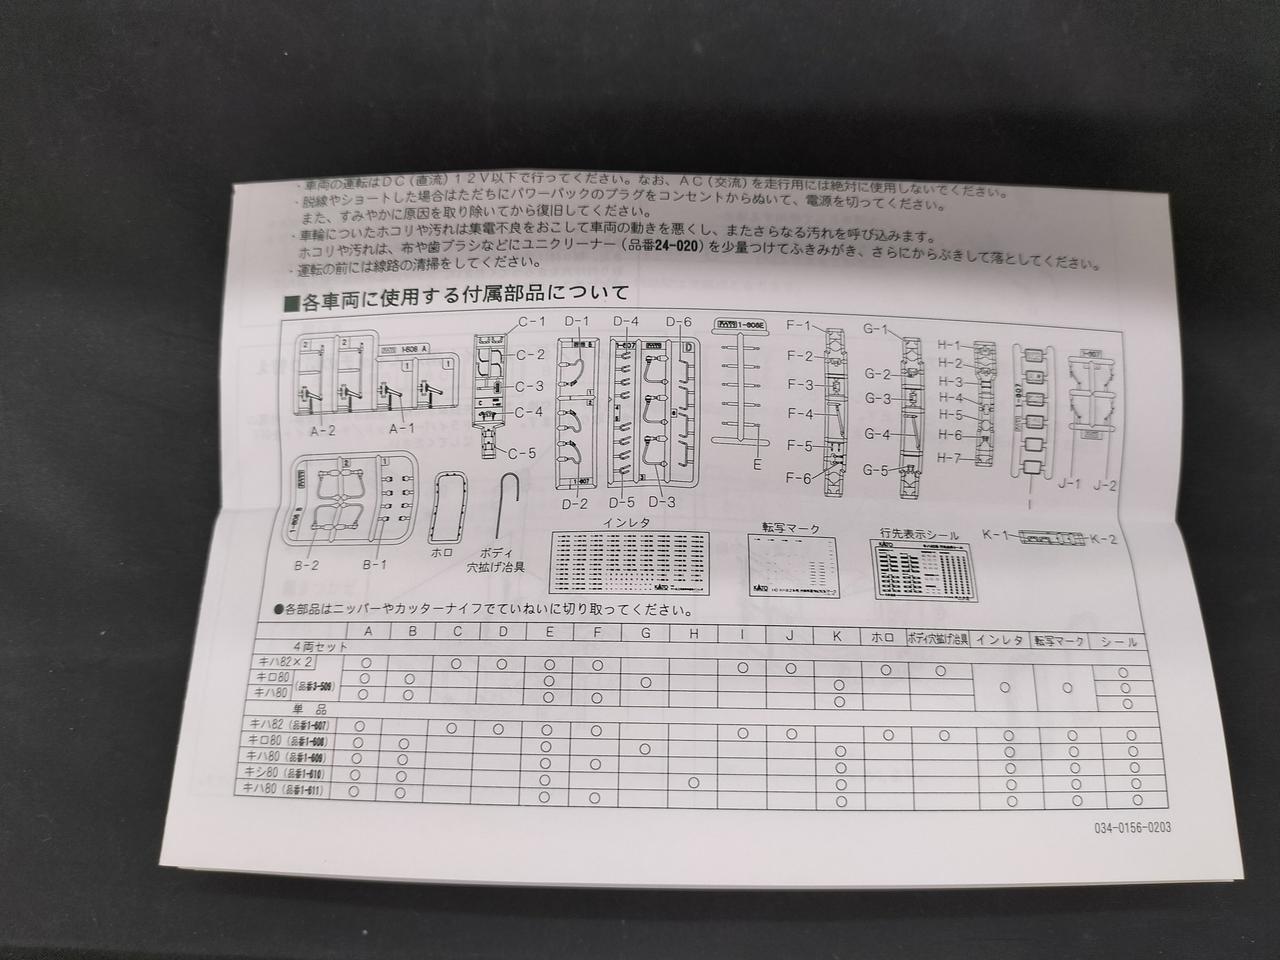 ・車両の運転はDC(直流)12V以下で行ってください。なお、AC(交流)を走行用には絶対に使用しないでください。
・脱線やショートした場合はただちにパワーパックのプラグをコンセントからぬいて、電源を切ってください。
また、すみやかに原因を取り除いてから復旧してください。
・車輪についたホコリや汚れは集電不良をおこして車両の動きを悪くし、またさらなる汚れを呼び込みます。
ホコリや汚れは、布や歯ブラシなどにユニクリーナー(品番24-020)を少量つけてふきみがき、さらにからぶきして落としてください。
・運転の前には線路の清掃をしてください。
■各車両に使用する付属部品について
2 2 1-608 A 1 1
A-2 A-1
C-1
C-2
C-3
C-4
C-5
D-1 D-4 D-6
1-607 D
D-2 D-5 D-3
1-607
1-608E
E
F-1
F-2
F-3
F-4
F-5
F-6
G-1
G-2
G-3
G-4
G-5
H-1
H-2
H-3
H-4
H-5
H-6
H-7
1-607
I
1-607
J-1 J-2
2 1
1-608 B
B-2 B-1
ホロ
ボディ
穴拡げ冶具
インレタ
KATO
転写マーク
KATO
行先表示シール
KATO
K-1 K-2
●各部品はニッパーやカッターナイフでていねいに切り取ってください。
A B C D E F G H I J K ホロ ボディ穴拡げ冶具 インレタ 転写マーク シール
4両セット
キハ82×2 ○ ○ ○ ○ ○ ○ ○ ○ ○ ○
キロ80 (品番3-509) ○ ○ ○ ○ ○ ○ ○ ○
キハ80 ○ ○ ○ ○ ○ ○
単 品
キハ82 (品番1-607) ○ ○ ○ ○ ○ ○ ○ ○ ○ ○ ○ ○
キロ80 (品番1-608) ○ ○ ○ ○ ○ ○ ○ ○
キハ80 (品番1-609) ○ ○ ○ ○ ○ ○ ○ ○
キシ80 (品番1-610) ○ ○ ○ ○ ○ ○ ○ ○
キハ80 (品番1-611) ○ ○ ○ ○ ○ ○ ○ ○
034-0156-0203